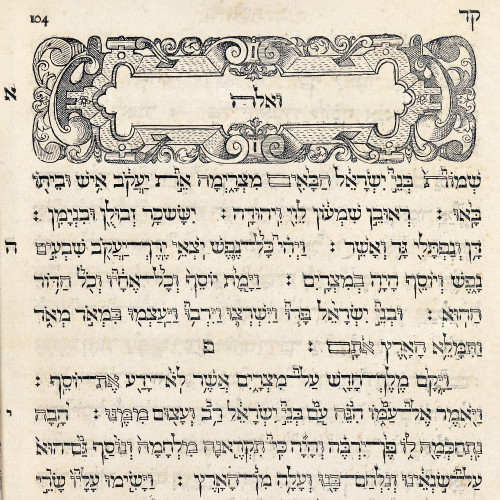 104 קד
א
וְאֵלֶּה
שְׁמוֹת בְּנֵי יִשְׂרָאֵל הַבָּאִים מִצְרָיְמָה אֵת יַעֲקֹב אִישׁ וּבֵיתוֹ
בָּאוּ : רְאוּבֵן שִׁמְעוֹן לֵוִי וִיהוּדָה : יִשָּׂשכָר זְבוּלֻן וּבִנְיָמִן :
ה דָּן וְנַפְתָּלִי גָּד וְאָשֵׁר : וַיְהִי כָּל־נֶפֶשׁ יֹצְאֵי יֶרֶךְ־יַעֲקֹב שִׁבְעִים
נָפֶשׁ וְיוֹסֵף הָיָה בְמִצְרָיִם : וַיָּמָת יוֹסֵף וְכָל־אֶחָיו וְכֹל הַדּוֹר
הַהוּא : וּבְנֵי יִשְׂרָאֵל פָּרוּ וַיִּשְׁרְצוּ וַיִּרְבּוּ וַיַּעַצְמוּ בִּמְאֹד מְאֹד
וַתִּמָּלֵא הָאָרֶץ אֹתָם : פ
וַיָּקָם מֶלֶךְ חָדָשׁ עַל־מִצְרָיִם אֲשֶׁר לֹא־יָדַע אֶת־יוֹסֵף :
י וַיֹּאמֶר אֶל־עַמּוֹ הִנֵּה עַם בְּנֵי יִשְׂרָאֵל רַב וְעָצוּם מִמֶּנּוּ : הָבָה
נִתְחַכְּמָה לוֹ פֶּן־יִרְבֶּה וְהָיָה כִּי־תִקְרֶאנָה מִלְחָמָה וְנוֹסַף גַּם־הוּא
עַל־שֹׂנְאֵינוּ וְנִלְחַם־בָּנוּ וְעָלָה מִן־הָאָרֶץ : וַיָּשִׂימוּ עָלָיו שָׂרֵי